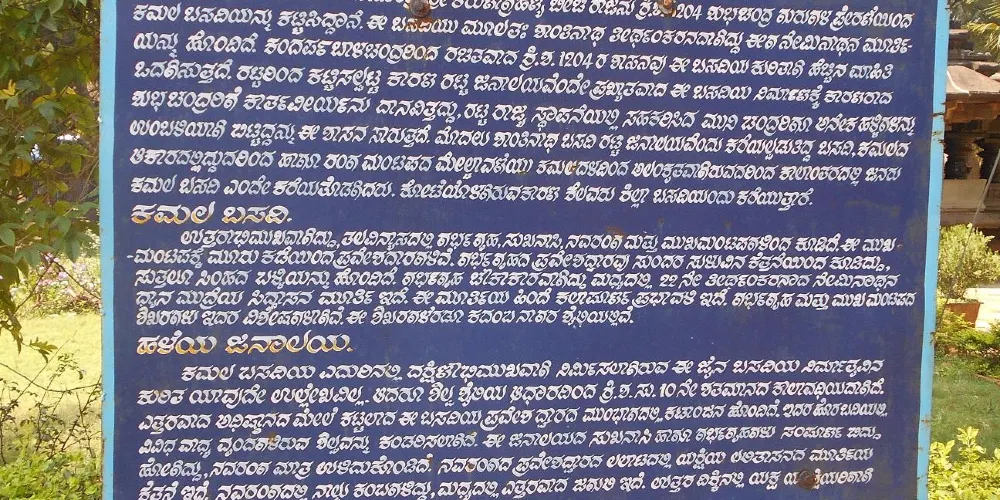 ಕಮಲ ಬಸದಿಯನ್ನು ಕಟ್ಟಿಸಿದ್ದಾನೆ. ಈ ಬಸದಿಯು ಮೂಲತಃ ಶಾಂತಿನಾಥ ತೀರ್ಥಂಕರನದಾಗಿದ್ದು ಈಗ ನೇಮಿನಾಥನ ಮೂರ್ತಿ-
ಯನ್ನು ಹೊಂದಿದೆ. ಕಂದರ್ಪ ಬಾಳಚಂದ್ರರಿಂದ ರಚಿತವಾದ ಕ್ರಿ.ಶ. 1204 ರ ಶಾಸನವು ಈ ಬಸದಿಯ ಕುರಿತಾಗಿ ಹೆಚ್ಚಿನ ಮಾಹಿತಿ
ಒದಗಿಸುತ್ತದೆ. ರಟ್ಟರಿಂದ ಕಟ್ಟಿಸಲ್ಪಟ್ಟ ಕಾರಣ ರಟ್ಟ ಜಿನಾಲಯವೆಂದೇ ಪ್ರಖ್ಯಾತವಾದ ಈ ಬಸದಿಯ ನಿರ್ಮಾಣಕ್ಕೆ ಕಾರಣರಾದ
ಶುಭಚಂದ್ರರಿಗೆ ಕಾರ್ತವೀರ್ಯನು ದಾನವಿತ್ತದ್ದು, ರಟ್ಟ ರಾಜ್ಯ ಸ್ಥಾಪನೆಯಲ್ಲಿ ಸಹಕರಿಸಿದ ಮುನಿ ಚಂದ್ರರಿಗೂ ಅನೇಕ ಹಳ್ಳಿಗಳನ್ನು
ಉಂಬಳಿಯಾಗಿ ಬಿಟ್ಟದ್ದನ್ನು ಈ ಶಾಸನ ಸಾರುತ್ತದೆ. ಮೊದಲು ಶಾಂತಿನಾಥ ಬಸದಿ ರಟ್ಟ ಜಿನಾಲಯವೆಂದು ಕರೆಯಲ್ಪಡುತ್ತಿದ್ದ ಬಸದಿ, ಕಮಲದ
ಆಕಾರದಲ್ಲಿದ್ದುದರಿಂದ ಹಾಗೂ ರಂಗ ಮಂಟಪದ ಮೇಲ್ಛಾವಣಿಯು ಕಮಲದಳದಿಂದ ಅಲಂಕೃತವಾಗಿರುವದರಿಂದ ಕಾಲಾಂತರದಲ್ಲಿ ಜನರು
ಕಮಲ ಬಸದಿ ಎಂದೇ ಕರೆಯತೊಡಗಿದರು. ಕೋಟೆಯೊಳಗಿರುವ ಕಾರಣ ಕೆಲವರು ಕಿಲ್ಲಾ ಬಸದಿಯೆಂದು ಕರೆಯುತ್ತಾರೆ.
ಕಮಲ ಬಸದಿ.
ಉತ್ತರಾಭಿಮುಖವಾಗಿದ್ದು, ತಲವಿನ್ಯಾಸದಲ್ಲಿ ಗರ್ಭಗೃಹ, ಸುಖನಾಸಿ, ನವರಂಗ ಮತ್ತು ಮುಖಮಂಟಪಗಳಿಂದ ಕೂಡಿದೆ. ಈ ಮುಖ-
-ಮಂಟಪಕ್ಕೆ ಮೂರು ಕಡೆಯಿಂದ ಪ್ರವೇಶದ್ವಾರಗಳಿವೆ. ಗರ್ಭಗೃಹದ ಪ್ರವೇಶದ್ವಾರವು ಸುಂದರ ಸುಳುವಿನ ಕೆತ್ತನೆಯಿಂದ ಕೂಡಿದ್ದು,
ಸುತ್ತಲೂ ಸಿಂಹದ ಬಳ್ಳಿಯನ್ನು ಹೊಂದಿದೆ. ಗರ್ಭಗೃಹ ಚೌಕಾಕಾರವಾಗಿದ್ದು ಮಧ್ಯದಲ್ಲಿ, 22 ನೇ ತೀರ್ಥಂಕರನಾದ ನೇಮಿನಾಥನ
ಧ್ಯಾನ ಮುದ್ರೆಯ ಸಿದ್ಧಾಸನ ಮೂರ್ತಿ ಇದೆ. ಈ ಮೂರ್ತಿಯ ಹಿಂದೆ ಕಲಾಪೂರ್ಣ ಪ್ರಭಾವಳಿ ಇದೆ. ಗರ್ಭಗೃಹ ಮತ್ತು ಮುಖಮಂಟಪದ
ಶಿಖರಗಳು ಇದರ ವಿಶೇಷಗಳಾಗಿವೆ. ಈ ಶಿಖರಗಳೆರಡೂ ಕದಂಬ ನಾಗರ ಶೈಲಿಯಲ್ಲಿವೆ.
ಹಳೆಯ ಜಿನಾಲಯ.
ಕಮಲ ಬಸದಿಯ ಎದುರಿನಲ್ಲಿ ದಕ್ಷಿಣಾಭಿಮುಖವಾಗಿ ನಿರ್ಮಿಸಲಾಗಿರುವ ಈ ಜೈನ ಬಸದಿಯ ನಿರ್ಮಾತೃವಿನ
ಕುರಿತ ಯಾವುದೇ ಉಲ್ಲೇಖವಿಲ್ಲ. ಆದರೂ ಶಿಲ್ಪ ಶೈಲಿಯ ಆಧಾರದಿಂದ ಕ್ರಿ.ಶ.ಸು. 10 ನೇ ಶತಮಾನದ ಕಾಲಾವಧಿಯದಾಗಿದೆ.
ಎತ್ತರವಾದ ಅಧಿಷ್ಠಾನದ ಮೇಲೆ ಕಟ್ಟಲಾದ ಈ ಬಸದಿಯು ಪ್ರವೇಶ ದ್ವಾರದ ಮುಂಭಾಗದಲ್ಲಿ ಕಟಾಂಜನ ಹೊಂದಿದೆ. ಇದರ ಹೊರಬದಿಯಲ್ಲಿ
ವಿವಿಧ ವಾದ್ಯ ವೃಂದಗಳಿರುವ ಶಿಲ್ಪವನ್ನು ಕಂಡರಿಸಲಾಗಿದೆ. ಈ ಜಿನಾಲಯದ ಸುಖನಾಸಿ ಹಾಗೂ ಗರ್ಭಗೃಹಗಳು ಸಂಪೂರ್ಣ ಬಿದ್ದು
ಹೋಗಿದ್ದು, ನವರಂಗ ಮಾತ್ರ ಉಳಿದುಕೊಂಡಿದೆ. ನವರಂಗದ ಪ್ರವೇಶದ್ವಾರದ ಲಲಾಟದಲ್ಲಿ ಯಕ್ಷಿಯ ಲಲಿತಾಸನದ ಮೂರ್ತಿಯ
ಕೆತ್ತನೆ ಇದೆ. ನವರಂಗದಲ್ಲಿ ನಾಲ್ಕು ಕಂಬಗಳಿದ್ದು, ಮಧ್ಯದಲ್ಲಿ ಎತ್ತರವಾದ ಜಗುಲಿ ಇದೆ. ಉತ್ತರ ದಿಕ್ಕಿನಲ್ಲಿ ಯಕ್ಷ